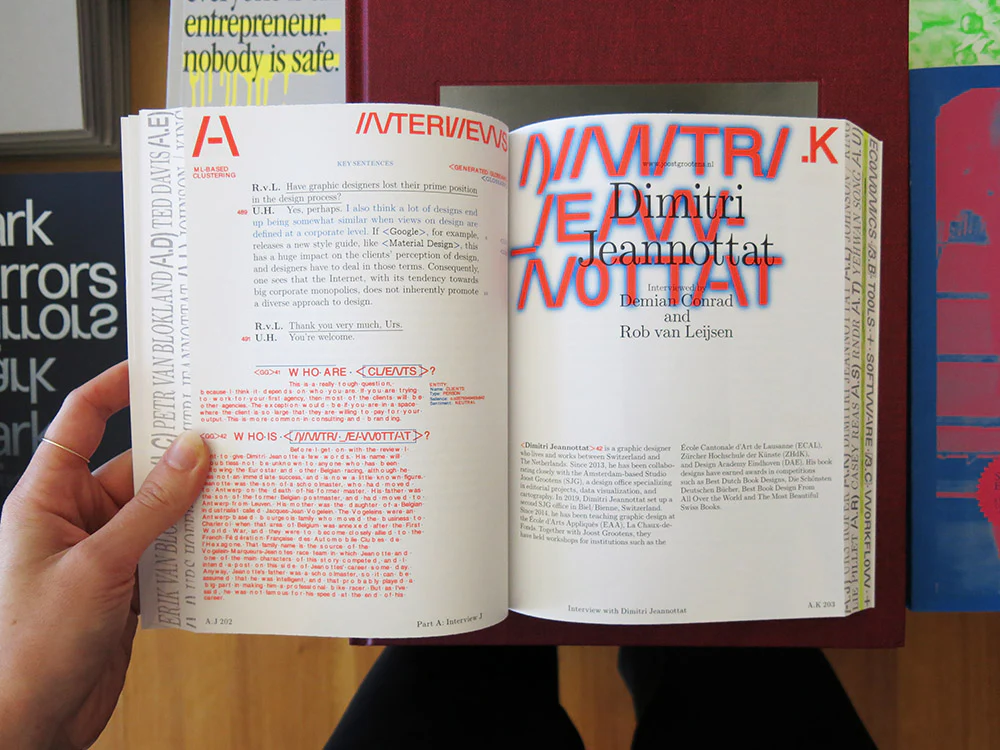 everyone is an
entrepreneur.
nobody is safe.
ark
rrors
ark
/-\
ML-BASED
CLUSTERING
INTERVIEWS
KEY SENTENCES
<GENERATED
R.v.L. Have graphic designers lost their prime position
in the design process?
489 U.H. Yes, perhaps. I also think a lot of designs end
up being somewhat similar when views on design are
defined at a corporate level. If <Google>, for example,
releases a new style guide, like <Material Design>, this
has a huge impact on the clients' perception of design,
and designers have to deal in those terms. Consequently,
one sees that the Internet, with its tendency towards
big corporate monopolies, does not inherently promote
a diverse approach to design.
R.v.L. Thank you very much, Urs.
491 U.H. You're welcome.
<GG>41 WHO ARE <CLIENTS>?
This is a really tough question,
because I think it depends on who you are. If you are trying
to work for your first agency, then most of the clients will be
other agencies. The exception would be if you are in a space
where the client is so large that they are willing to pay for your
output. This is more common in consulting and branding.
ENTITY
Name: CLIENTS
Type: PERSON
Sentiment: NEUTRAL
<GG>42 WHO IS <DIMITRI JEANNOTTAT>?
Before I get on with the review I
want to give Dimitri Jeannotte a few words. His name will
doubtless not be unknown to anyone who has been
following the Eurostar and other Belgian racing, although he
was not an immediate success, and is now a little known figure.
He was the son of a schoolmaster, who had moved
to Antwerp on the death of his former master. His father was
the son of the former Belgian postmaster, and had moved to
Antwerp from Leuven. His mother was the daughter of a Belgian
industrialist called Jacques-Jean Vogelein. The Vogeleins were an
Antwerp based bourgeois family who moved the business to
Charleroi when that area of Belgium was annexed after the First
World War, and they were to become closely allied to the
French Fédération Française des Automobile Clubes de
l'Hexagone. That family name is the source of the
Vogelein-Marqueurs-Jeannotes race team in which Jeannotte and
one of the main characters of the story competed, and I
intend a post on this side of Jeannottes' career some day.
Anyway, Jeannotte's father was a schoolmaster, so it can be
assumed that he was intelligent, and that probably played a
big part in making him a professional bike racer. But as I've
said, he was not famous for his speed at the end of his
career.
A.J 202
Part A: Interview J
DIMITRI
JEANNOTTAT
.K
www.joostgrootens.nl
Dimitri
Jeannottat
Interviewed by
Demian Conrad
and
Rob van Leijsen
<Dimitri Jeannottat>42 is a graphic designer
who lives and works between Switzerland and
The Netherlands. Since 2013, he has been collabo-
rating closely with the Amsterdam-based Studio
Joost Grootens (SJG), a design office specializing
in editorial projects, data visualization, and
cartography. In 2019, Dimitri Jeannottat set up a
second SJG office in Biel/Bienne, Switzerland.
Since 2014, he has been teaching graphic design at
the École d'Arts Appliqués (EAA), La Chaux-de-
Fonds. Together with Joost Grootens, they
have held workshops for institutions such as the
École Cantonale d'Art de Lausanne (ECAL),
Zürcher Hochschule der Künste (ZHdK),
and Design Academy Eindhoven (DAE). His book
designs have earned awards in competitions
such as Best Dutch Book Designs, Die Schönsten
Deutschen Bücher, Best Book Design From
All Over the World and The Most Beautiful
Swiss Books.
Interview with Dimitri Jeannottat
A.K 203
ECONOMICS
B.B TOOLS + SOFTWARE
B.C WORKFLOW +